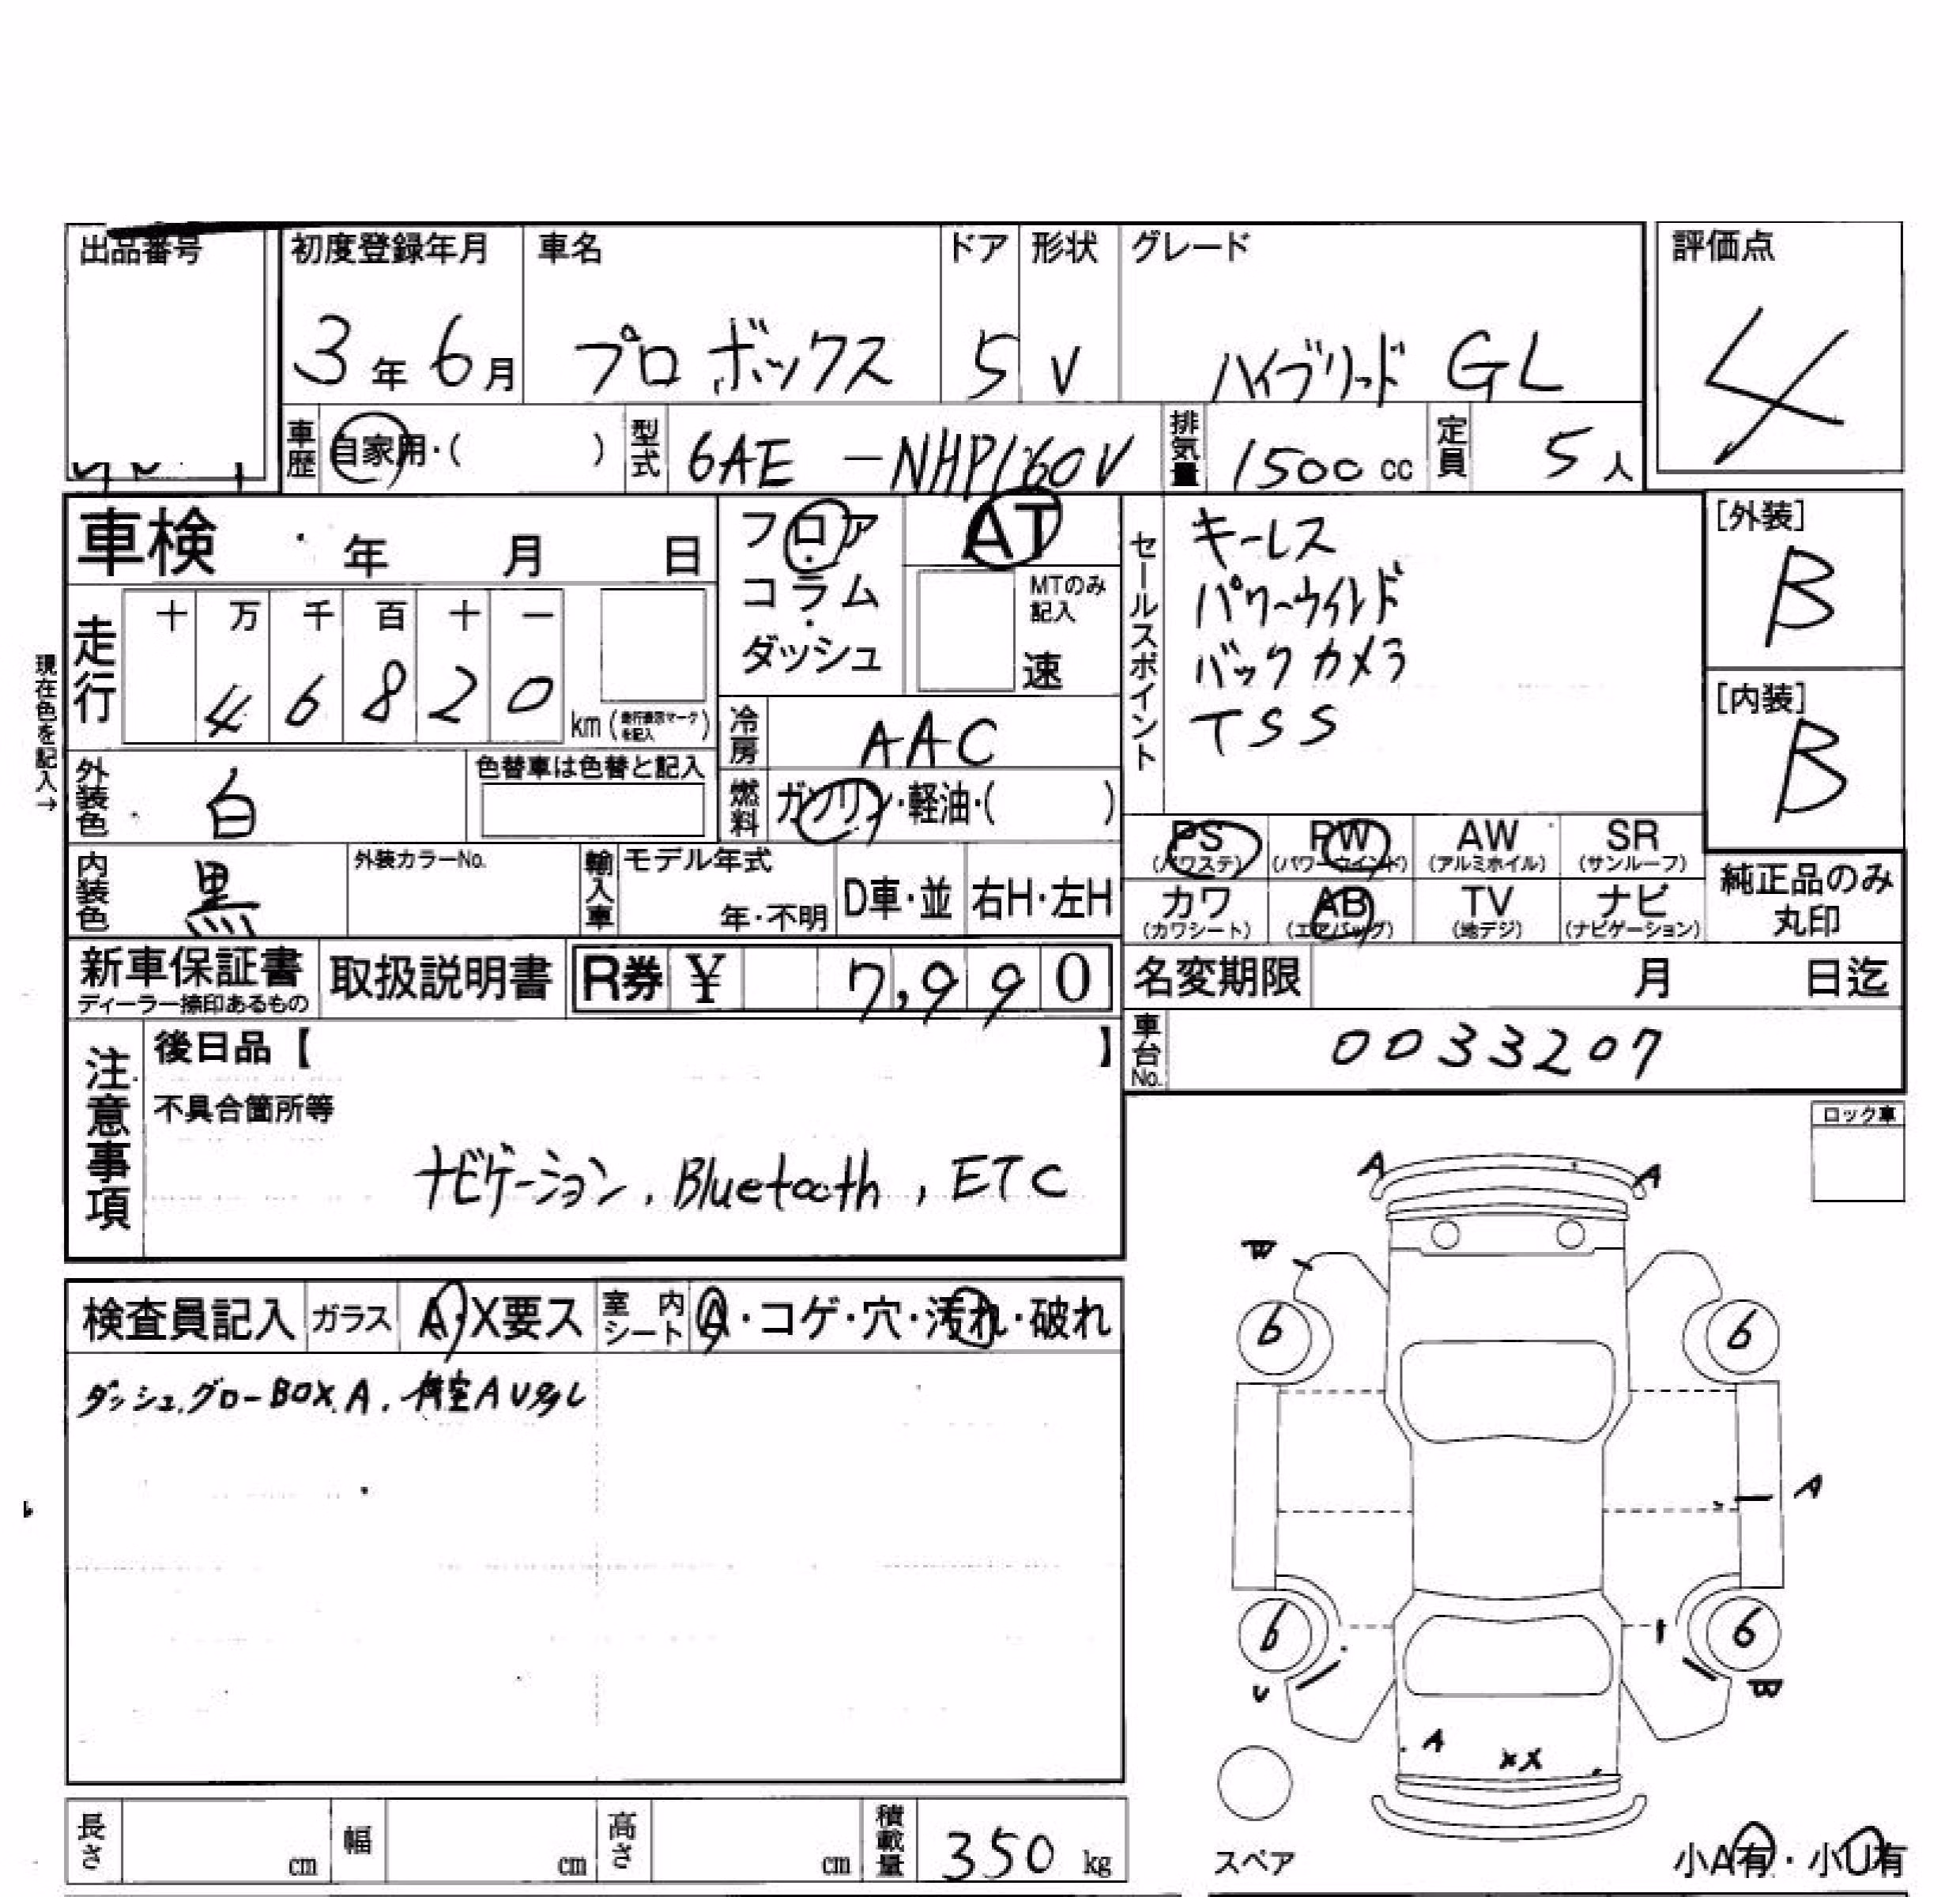 出品番号 初度登録年月 車名 ドア 形状 グレード 評価点
3年6月 プロボックス 5 V ハイブリッド GL 4
車歴 自家用・( ) 型式 6AE-NHP160V 排気量 1500cc 定員 5人
車検 年 月 日 フロア・コラム・ダッシュ AT
MTのみ記入
速
セールスポイント
キーレス
パワーウインド
バックカメラ
TSS
[外装] B
[内装] B
現在色を記入→
走行 十 万 千 百 十 一
4 6 8 2 0 km(走行表示マークを記入)
冷房 AAC
外装色 白 色替車は色替と記入
燃料 ガソリン・軽油・( )
PS (パワステ) PW (パワーウインド) AW (アルミホイル) SR (サンルーフ)
カワ (カワシート) AB (エアバッグ) TV (地デジ) ナビ (ナビゲーション)
純正品のみ
丸印
内装色 黒 外装カラーNo. 輸入車 モデル年式 年・不明 D車・並 右H・左H
新車保証書 ディーラー捺印あるもの 取扱説明書 R券 ¥ 7,990
名変期限 月 日迄
車台No. 0033207
注意事項
後日品【 】
不具合箇所等
ナビゲーション, Bluetooth, ETC
ロック車
検査員記入 ガラス A・X要ス 室内シート A・コゲ・穴・汚れ・破れ
ダッシュ.グローBOX.A.
A A
W
6 6
A
6 6
U W
A XX
スペア
小A有・小U有
長さ cm 幅 cm 高さ cm 積載量 350 kg